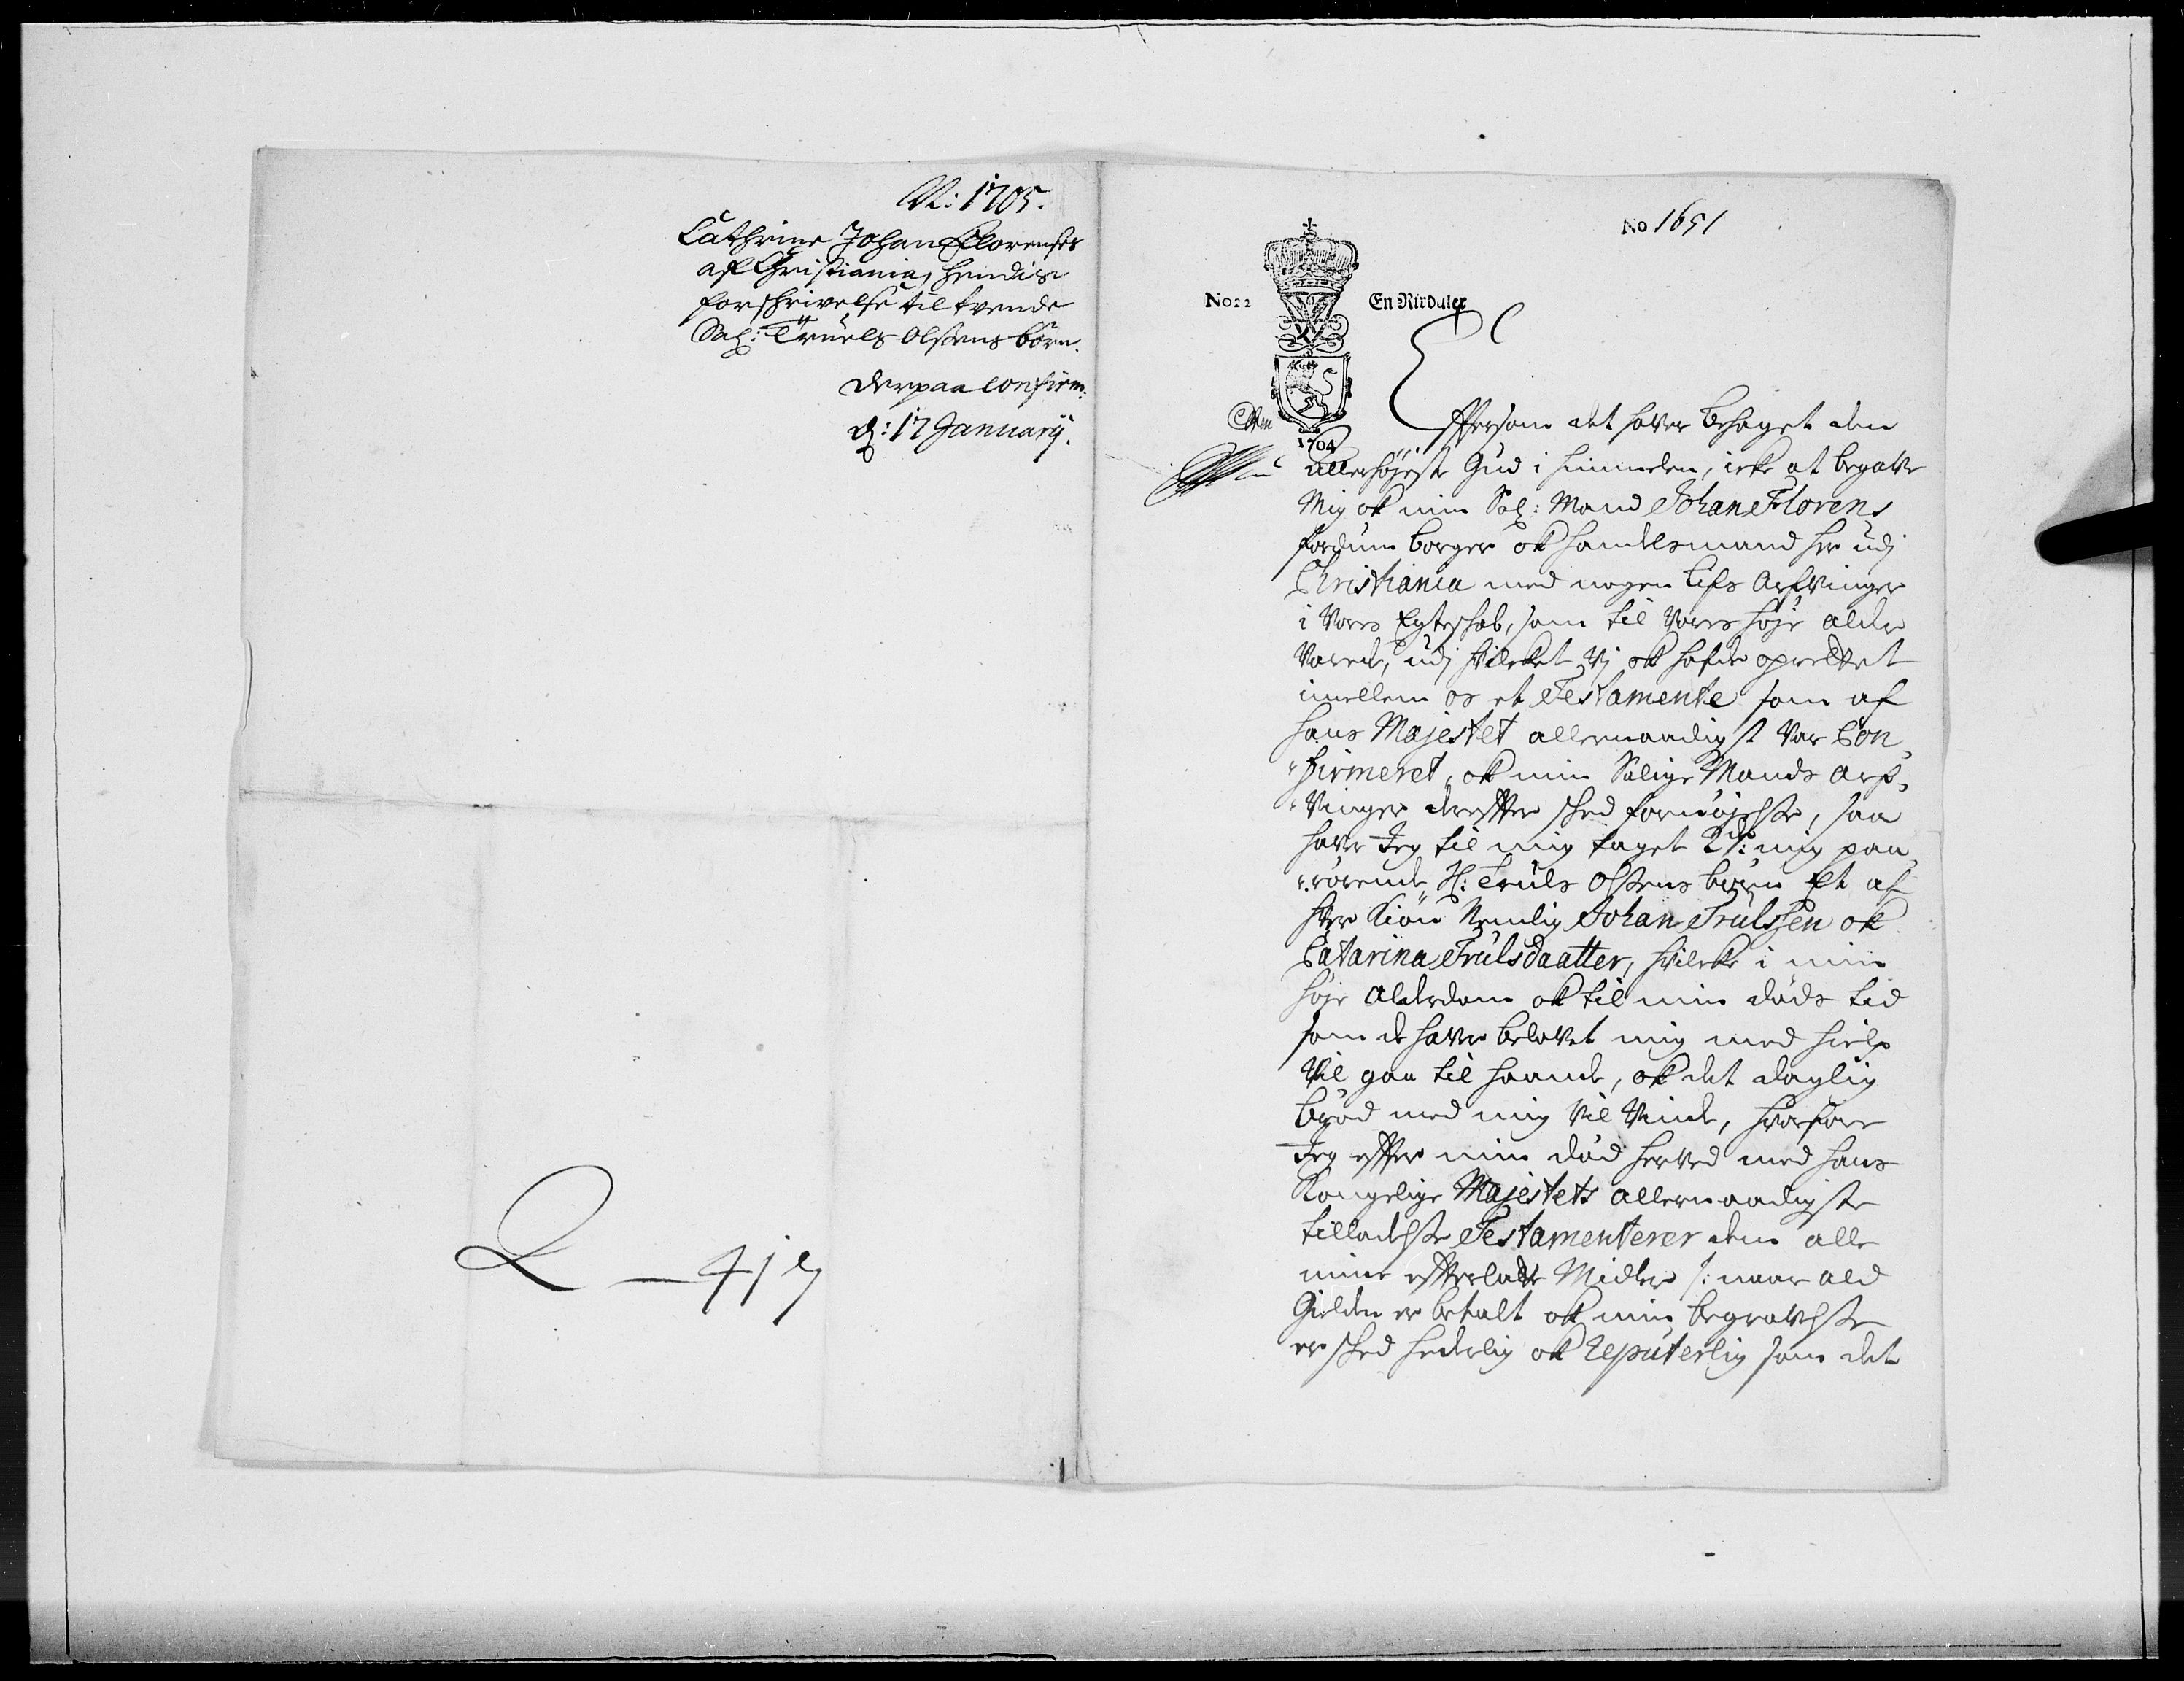 N: 1705.
Cathrine Johan Florenses
af Christiania, hendis
forschrivelse til tvende
Sal: Truels Olssens börn.
derpaa confirm:
d: 17 January.
L — 417
No 1651
No22
En Rixdaler
1704
Eftersom det haver behaget den
allerhöjeste Gud i himmelen, icke at begave
Mig ok min Sal: Mand Johan Florens
fordum borger ok handelsmand her udj
Christiania med nogen Lifs Arfvinger
i vores Egteskab, som til vores höje alder
varede, udj hvilcket vj ok hafde oprettet
imellem os et Testamente som af
hans Majestet allernaadigst var Con„
„firmeret, ok min Salige Mands Arf„
„vinger derefter skeed fornöjelse, saa
haver Jeg til mig taget 2de: mig paa„
„rörende H: Truls Olssens börn Et af
hver Kiön Nemlig Johan Trulssen ok
Catarina Trulsdaatter, hvilcke i min
höje Alderdom ok til min döds tid
som de haver belovet mig med hielp
vil gaa til haande, ok det daglig
bröd med mig vil vinde, hvorfore
Jeg efter min död herved med hans
Kongelige Majestets allernaadigste
tilladelse Testamenterer dem alle
mine efterladte Midler /: naar ald
Gielden er betalt ok min begravelse
er skeed hederlig ok reputerlig som det